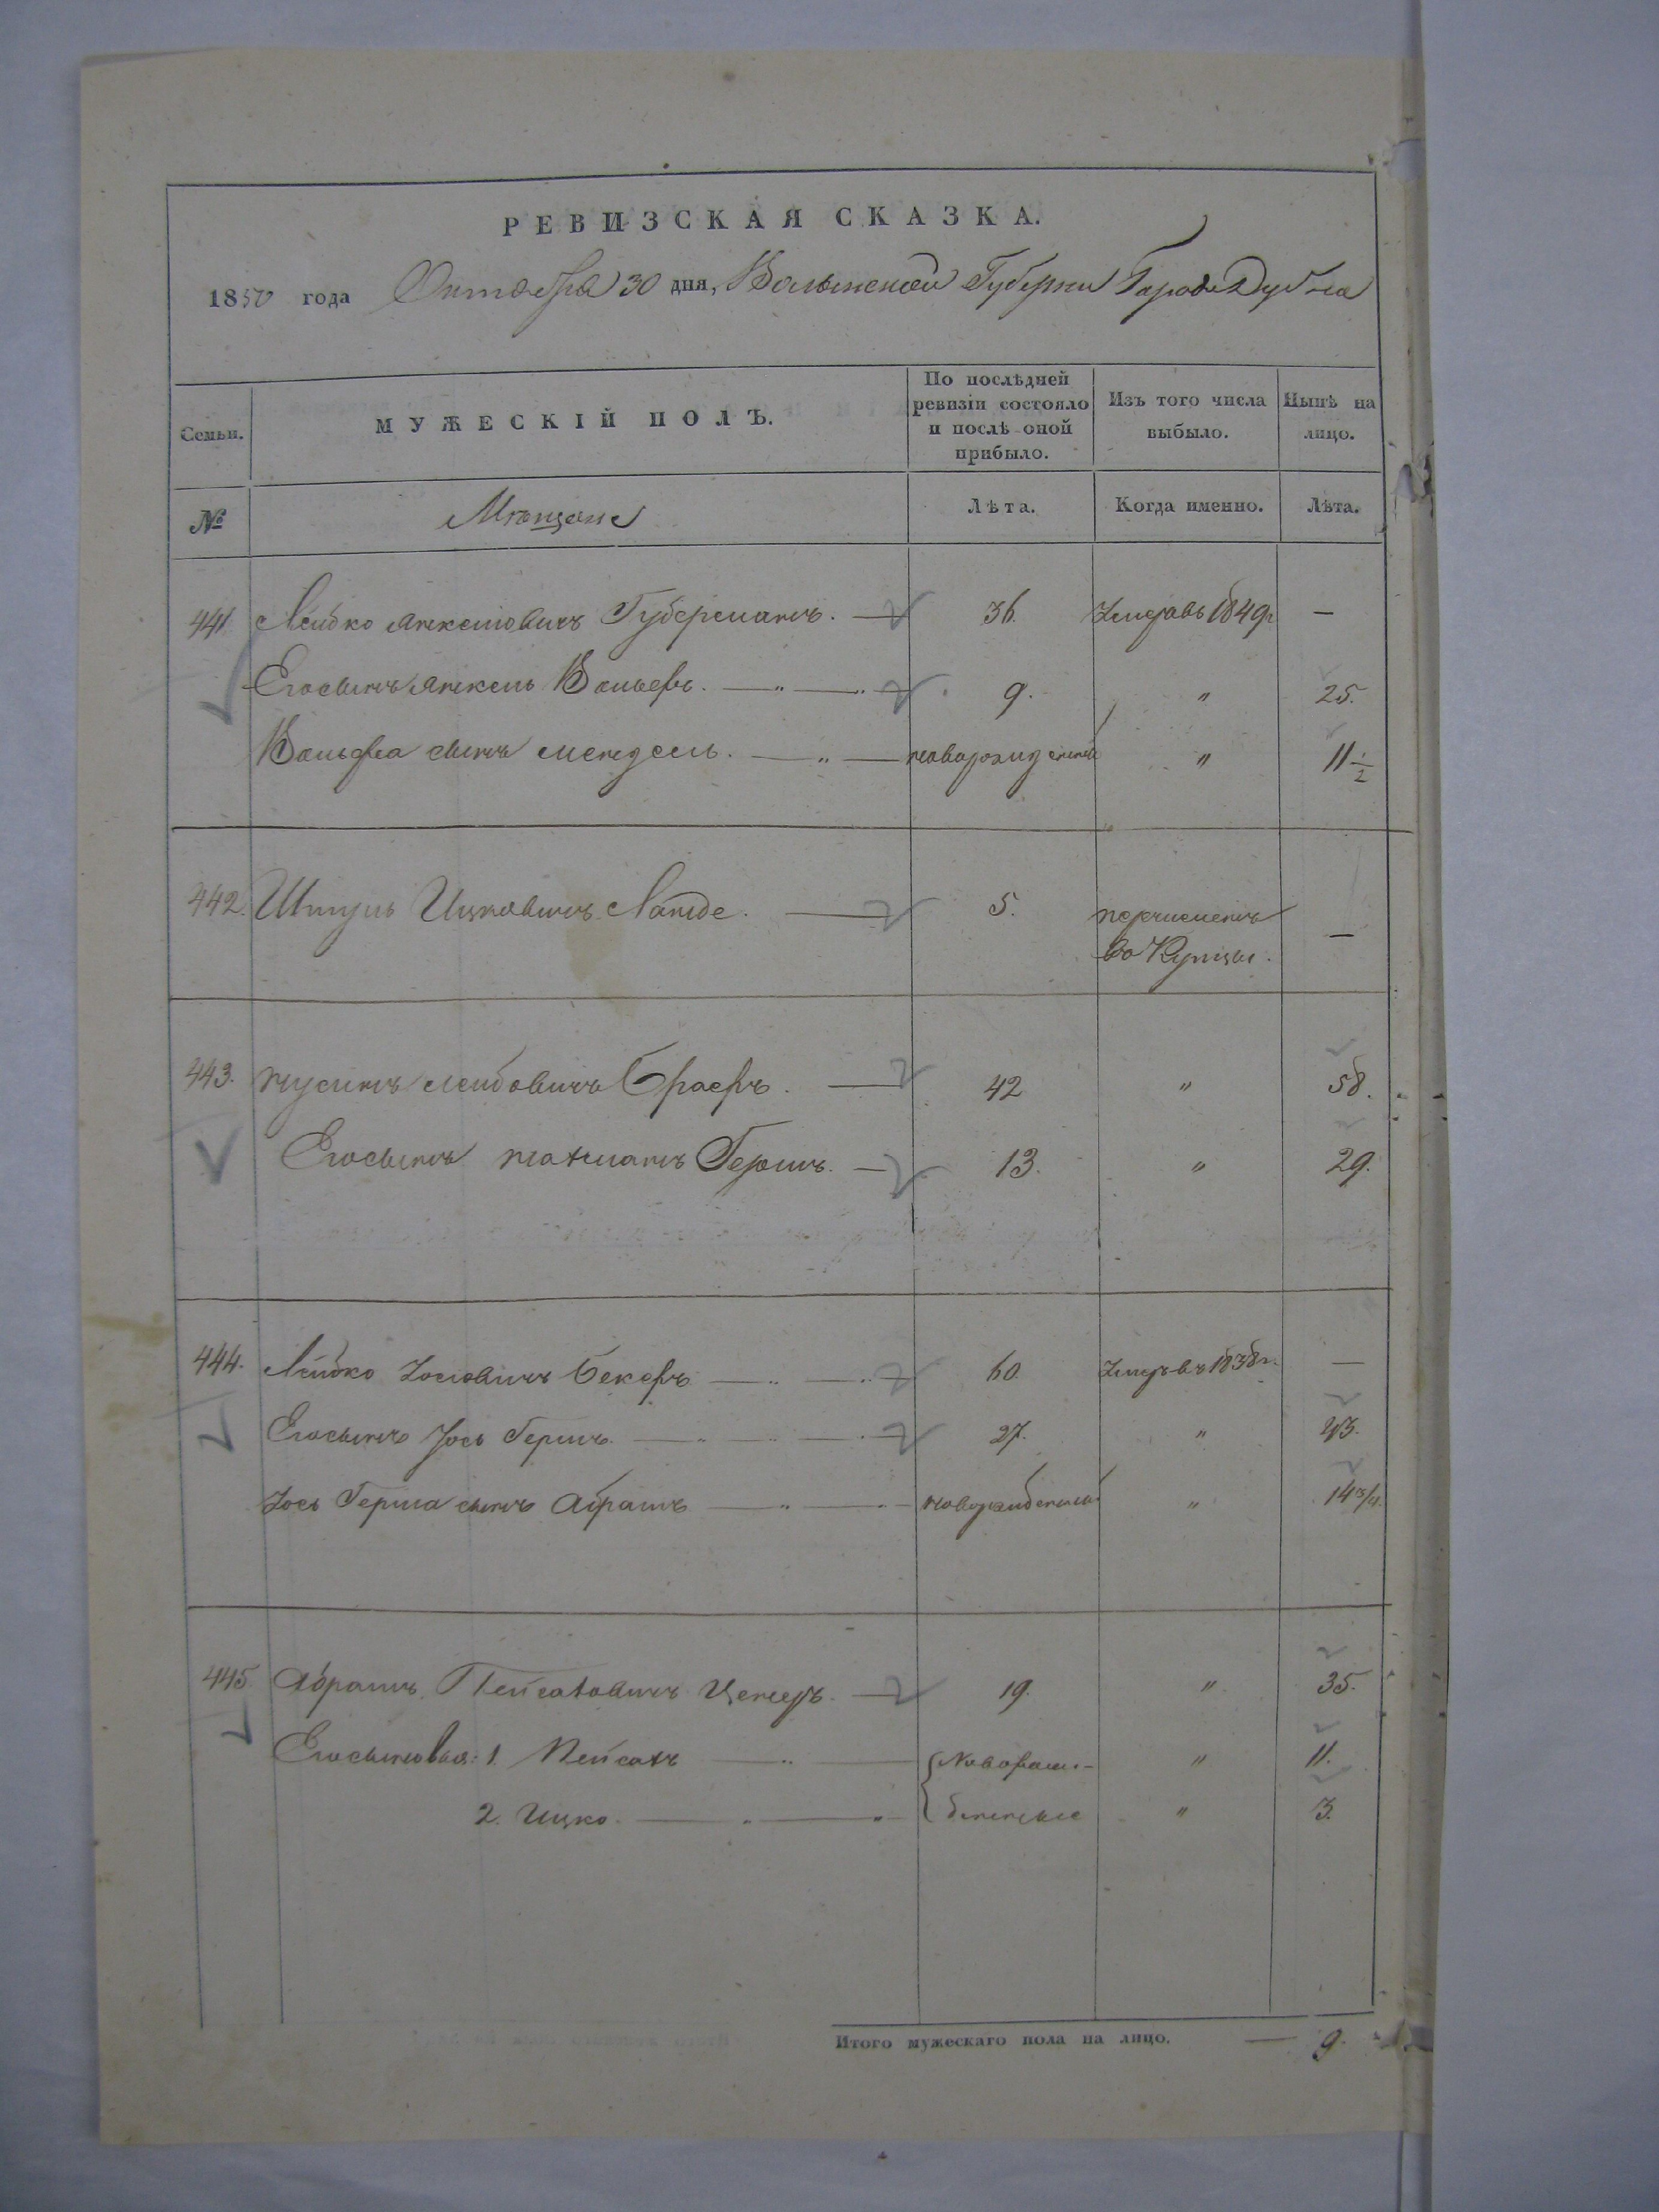 РЕВИЗСКАЯ СКАЗКА.
1850 года Октября 30 дня, Волынской Губернии Города Дубна
Семьи. МУЖЕСКІЙ ПОЛЪ. По послѣдней ревизіи состояло и послѣ оной прибыло. Изъ того числа выбыло. Нынѣ на лицо.
№ Мѣщане Лѣта. Когда именно. Лѣта.
441. Лейбко Анкелювичъ Губерманъ. 36. Умеръ въ 1849 г. —
Его сынъ Анкель Вольфъ. 9. " 25.
Вольфа сынъ Мендель. новорожденный " 11 1/2
442. Шмуль Ицковичъ Ланде. 5. перечисленъ во Купцы. —
443. Нусинъ Лейбовичъ Браеръ. 42 " 58.
Его сынъ Нахманъ Гершъ. 13. " 29.
444. Лейбко Іосіовичъ Бекеръ 60. Умеръ въ 1838 г. —
Его сынъ Іось Гершъ. 27. " 43.
Іось Герша сынъ Абрамъ новорожденный " 14 3/4.
445 Абрамъ Пейсаховичъ Ценеръ. 19. " 35.
Его сыновья: 1. Пейсахъ Новорож- " 11.
2. Ицко. денные " 3.
Итого мужескаго пола на лицо. — 9.